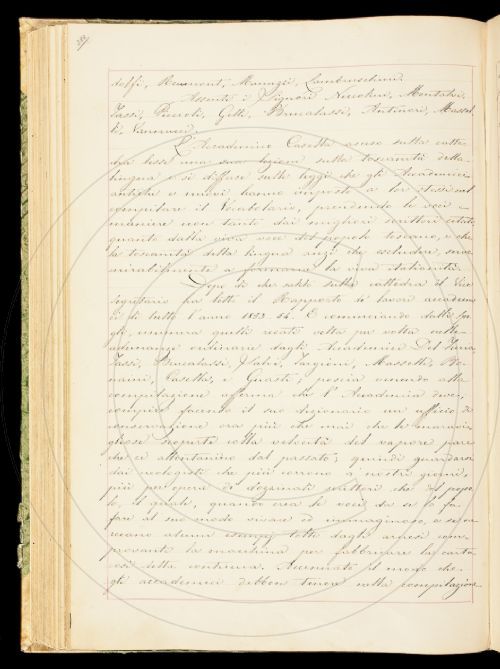 Reumont, Manuzzi, Lambruschini.
Assenti i Signori Niccolini, Montalvi,
Tassi, Puccioti, Gelli, Brucalassi, Antinori, Massel
li, Vannucci.
L'Accademico Casella ascese sulla catte-
dra lesse una sua lezione sulla toscanità della
lingua e si diffuse sulle leggi che gli Accademici
antichi e nuovi hanno imposte a lor stessi nel
compilare il Vocabolario, prendendo le voci e
maniere non tanto dai lunghi scrittori citati
quanto dalla viva voce del popolo toscano, e che
la toscanità della lingua anzi che escludere, serve
mirabilmente a formarne la vera italianità.
Dopo di che salito sulla cattedra il Vice
Segretario fa lette il Rapporto dei lavori accademi
ci di tutto l'anno 1853-54. E cominciando dalle
enumera quelli recati volta per volta nelle
adunanze ordinarie dagli Accademici Del Furia,
Tassi, Brucalassi, Targioni, Masselli, Be-
Casella, e Guasti; poscia venendo alla
compilazione afferma che l'Accademia deve
compiere facendo il suo dizionario un ufficio di
conservazione ora più che mai che le maravi-
gliose scoperte colla velocità del vapore pare
che ci allontanino dal passato; quindi guardarsi
dai neologisti che più corrono a nostri giorni,
più per opera di scrittori che del popo
lo, il quale, quando crea le voci da se lo fa
al suo modo vivace ed immaginoso, e se ne
recano alcuni esempi tolti dagli arnesi com-
provante la macchina per fabbricare la carta
così detta continua. Accennato il modo che
gli accademici debbon tenere nella compilazione